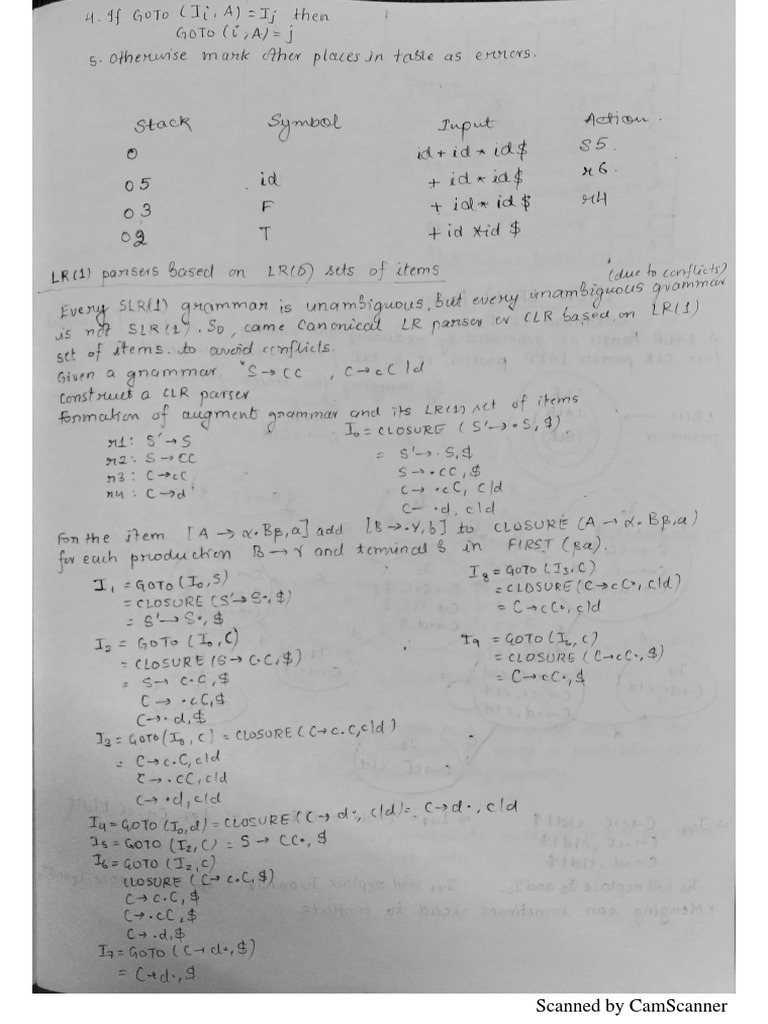 4. If GOTO (Ii, A) = Ij then
GOTO (i, A) = j
5. Otherwise mark other places in table as errors.
Stack Symbol Input Action.
0 id + id * id $ S5
0 5 id + id * id $ r6
0 3 F + id * id $ r4
0 2 T + id * id $
LR(1) parsers based on LR(0) sets of items
(due to conflicts)
Every SLR(1) grammar is unambiguous, but every unambiguous grammar
is not SLR(1). So, came Canonical LR parser or CLR based on LR(1)
set of items to avoid conflicts.
Given a grammar S → CC , C → cC | d
Construct a CLR parser
formation of augment grammar and its LR(1) set of items
r1: S' → S
r2: S → CC
r3: C → cC
r4: C → d
I0 = CLOSURE (S' → •S, $)
= S' → •S, $
S → •CC, $
C → •cC, c|d
C → •d, c|d
For the item [A → α•Bβ, a] add [B → •γ, b] to CLOSURE (A → α•Bβ, a)
for each production B → γ and terminal b in FIRST (βa).
I1 = GOTO (I0, S)
= CLOSURE (S' → S•, $)
= S' → S•, $
I2 = GOTO (I0, C)
= CLOSURE (S → C•C, $)
= S → C•C, $
C → •cC, $
C → •d, $
I3 = GOTO (I0, c) = CLOSURE (C → c•C, c|d)
= C → c•C, c|d
C → •cC, c|d
C → •d, c|d
I4 = GOTO (I0, d) = CLOSURE (C → d•, c|d) = C → d•, c|d
I5 = GOTO (I2, C) = S → CC•, $
I6 = GOTO (I2, c)
CLOSURE (C → c•C, $)
C → c•C, $
C → •cC, $
C → •d, $
I7 = GOTO (C → d•, $)
= C → d•, $
I8 = GOTO (I3, C)
= CLOSURE (C → cC•, c|d)
= C → cC•, c|d
I9 = GOTO (I6, C)
= CLOSURE (C → cC•, $)
= C → cC•, $
Scanned by CamScanner